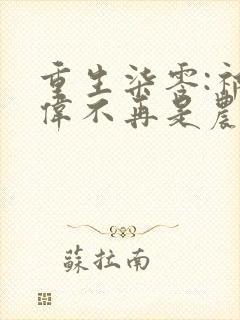 重生柒零:
偉不再是農
蘇拉南